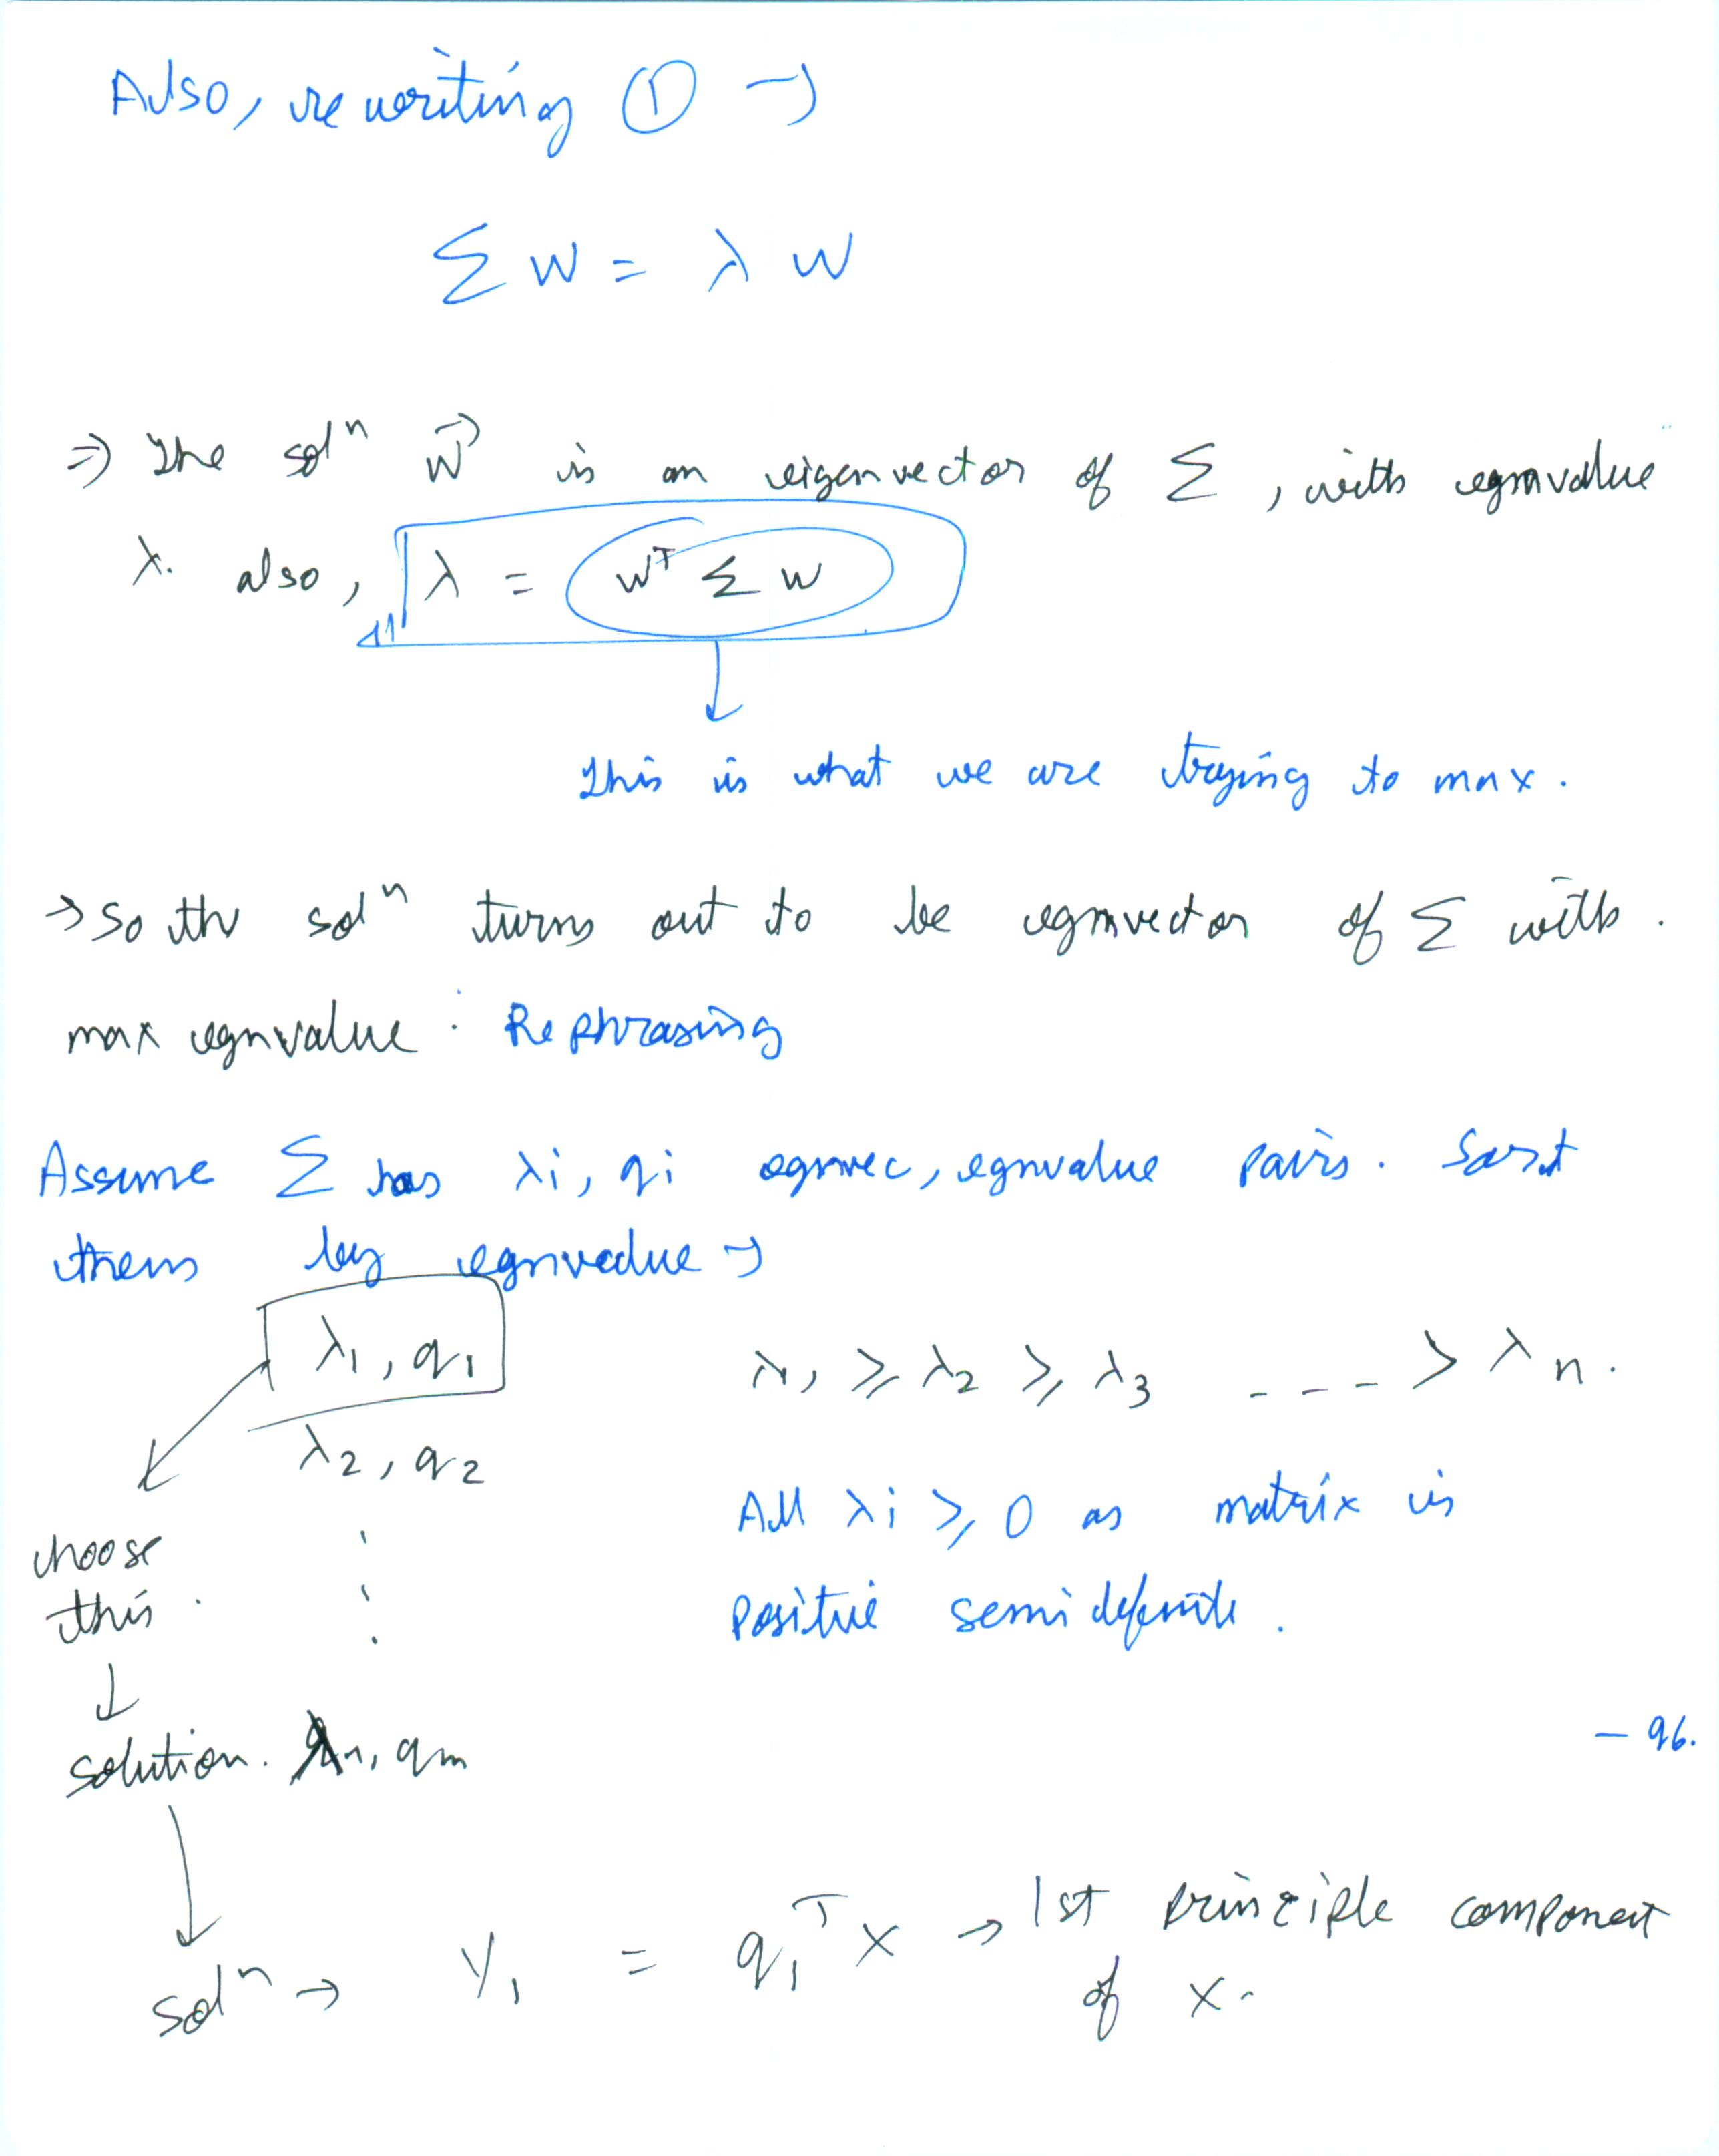 Also, rewriting ① →
Σ W = λ W
⇒ The solⁿ W⃗ is an eigenvector of Σ, with egnvalue
λ. also, λ = wᵀ Σ w
This is what we are trying to max.
→ so the solⁿ turns out to be egnvector of Σ with.
max egnvalue : Rephrasing
Assume Σ has λi, qi egnvec, egnvalue pairs. Sort
them by egnvalue →
λ1, q1 λ1, ≥ λ2 ≥ λ3 ---- > λn.
λ2, q2
All λi ≥ 0 as matrix is
choose
this.
positive semi definite.
↓
solution. λn, qm
- 96.
solⁿ → Y₁ = q₁ᵀ X → 1st principle component
of X.